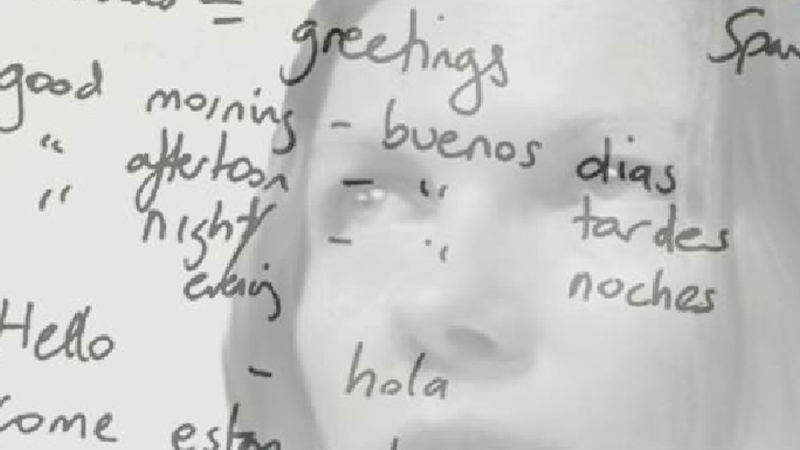 greetings
good morning - buenos dias
" aftertoon - " tardes
" night/ - " noches
evening
Hello - hola
come estan